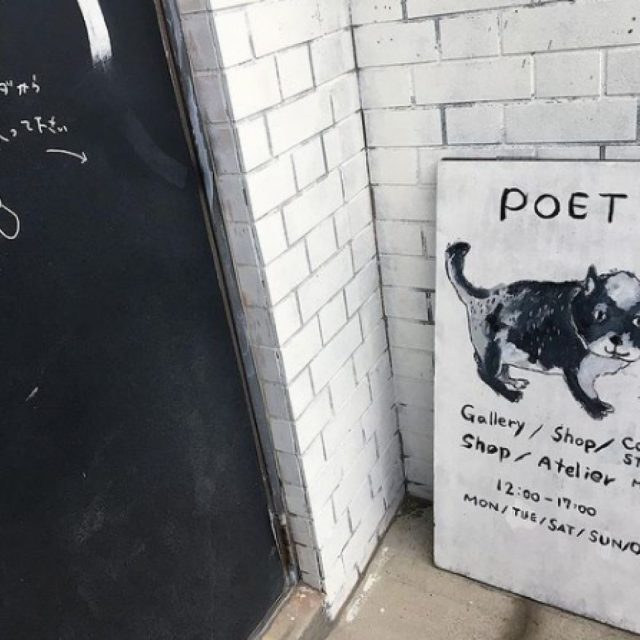 から
って下さい
POET
Gallery / Shop /
Shop / Atelier
12:00-17:00
MON / TUE / SAT / SUN /